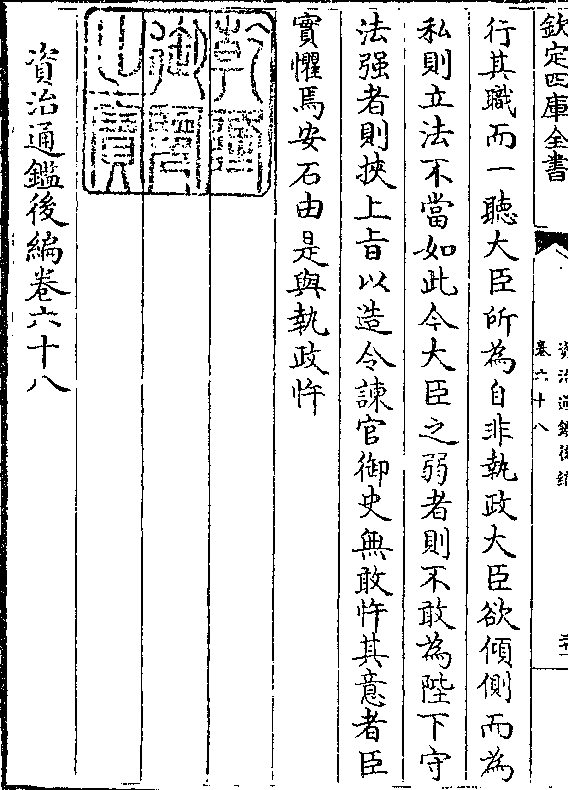 欽定四庫全書
資治通鑑後編
卷六十八
行其職而一聽大臣所為自非執政大臣欲傾側而為
私則立法不當如此今大臣之弱者則不敢為陛下守
法强者則挾上㫖以造令諫官御史無敢忤其意者臣
實懼焉安石由是與執政忤
乾隆御覽之寶
資治通鑑後編卷六十八